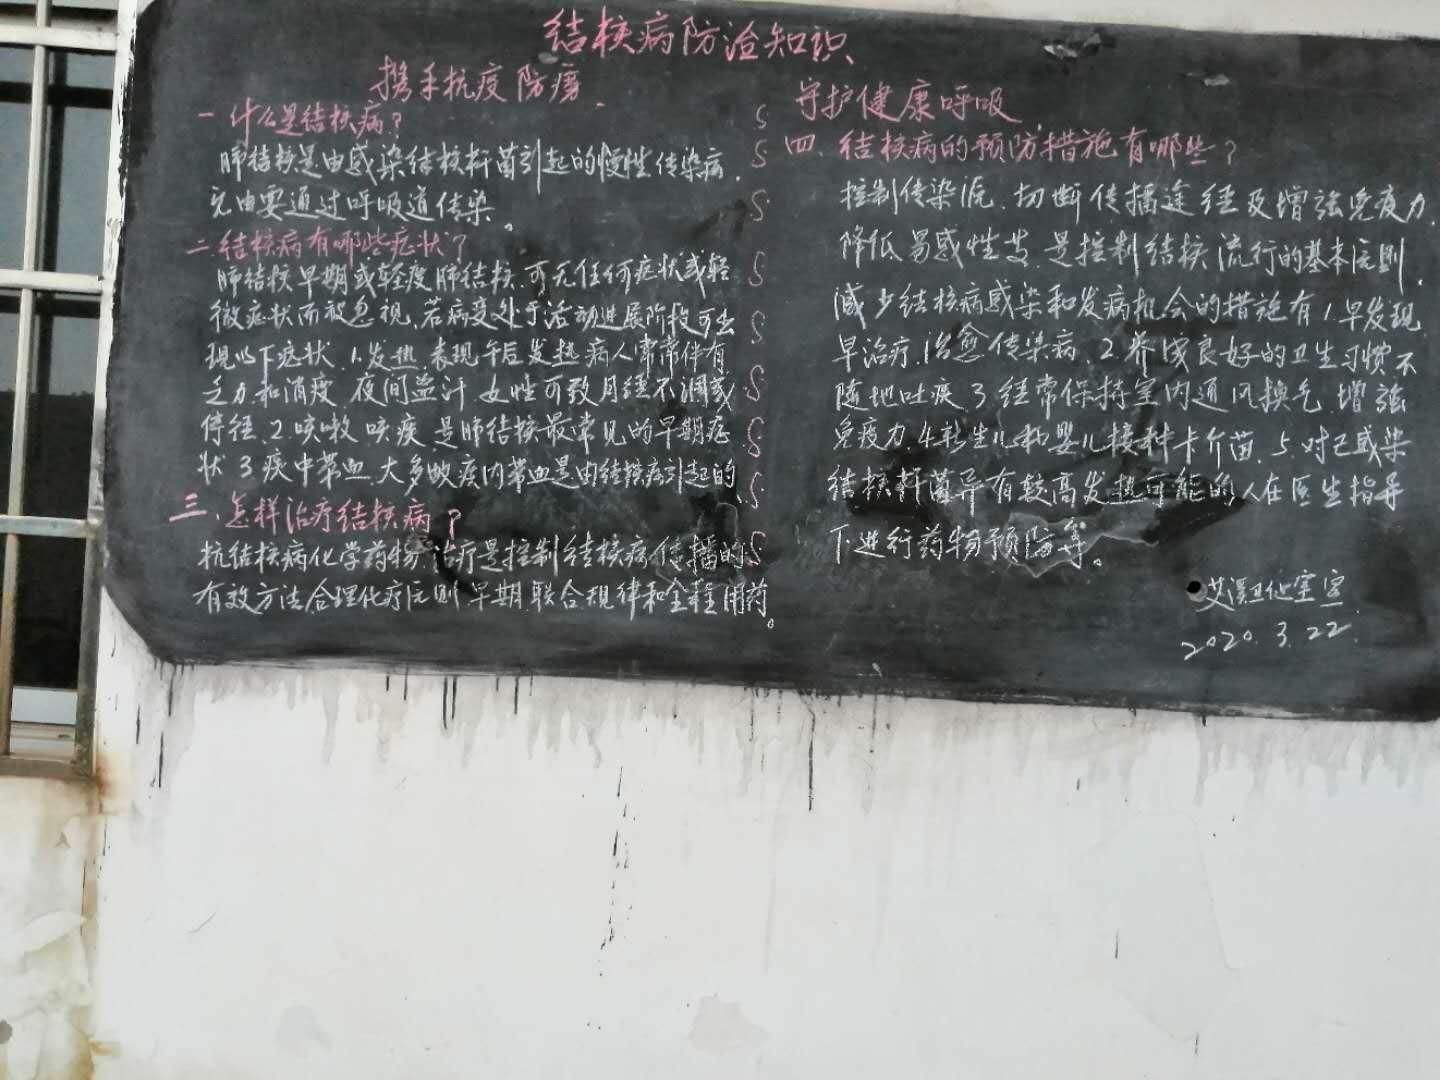 结核病防治知识
携手抗疫防痨
守护健康呼吸
一什么是结核病？
肺结核是由感染结核杆菌引起的慢性传染病，
要通过呼吸道传染。
二结核病有哪些症状？
肺结核早期或轻度肺结核，可无任何症状或轻
微症状而被忽视，若病变处于活动进展阶段可出
现以下症状，1.发热，表现午后发热病人常常伴有
乏力和消瘦，夜间盗汗，女性可致月经不调或
停经，2.咳嗽咳痰，是肺结核最常见的早期症
状 3痰中带血，大多数痰内带血是由结核病引起的
三、怎样治疗结核病？
抗结核病化学药物治疗是控制结核病传播的
有效方法合理化疗原则早期联合规律和全程用药。
四、结核病的预防措施有哪些？
控制传染源、切断传播途径及增强免疫力，
降低易感性等，是控制结核流行的基本原则，
减少结核病感染和发病机会的措施有1.早发现
早治疗，治愈传染病，2.养成良好的卫生习惯不
随地吐痰 3经常保持室内通风换气，增强
免疫力，4.新生儿和婴儿接种卡介苗，5.对已感染
结核杆菌并有较高发热可能的人在医生指导
下进行药物预防等。
艾溪卫生室宣
2020.3.22.